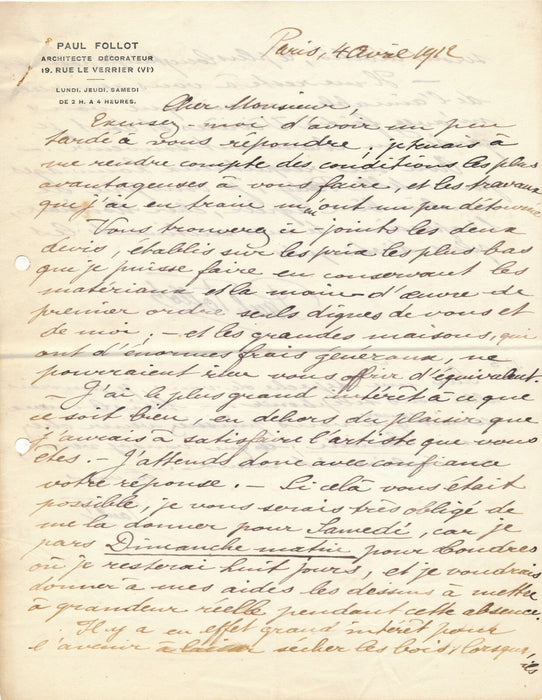 PAUL FOLLOT
ARCHITECTE DÉCORATEUR
19. RUE LE VERRIER (VIᵉ)
LUNDI, JEUDI, SAMEDI
DE 2 H. A 4 HEURES.
Paris, 4 avril 1912
Cher Monsieur,
Excusez-moi d'avoir un peu
tardé à vous répondre; je tenais à
me rendre compte des conditions les plus
avantageuses à vous faire, et les travaux
que j'ai en train m'en ont un peu détourné.
Vous trouverez ci-joints les deux
devis, établis sur les prix les plus bas
que je puisse faire en conservant les
matériaux et la main-d'œuvre de
premier ordre seuls dignes de vous et
de moi; – et les grandes maisons, qui
ont d'énormes frais généraux, ne
pourraient rien vous offrir d'équivalent.
– J'ai le plus grand intérêt à ce que
ce soit bien, en dehors du plaisir que
j'aurais à satisfaire l'artiste que vous
êtes. – J'attends donc avec confiance
votre réponse. – Si celà vous était
possible, je vous serais très obligé de
me la donner pour Samedi, car je
pars Dimanche matin pour Londres
où je resterai huit jours, et je voudrais
donner à mes aides les dessins à mettre
à grandeur réelle pendant cette absence.
Il y a en effet grand intérêt pour
l'avenir à laisser sécher les bois lorsqu'ils